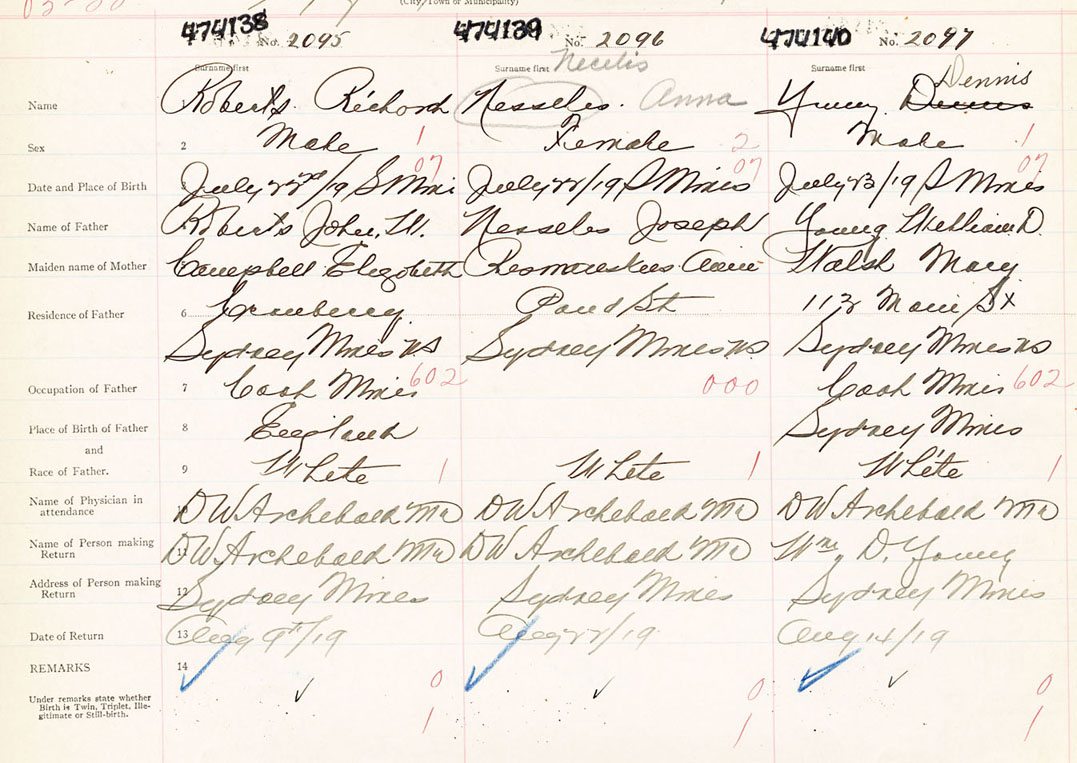 (City, Town or Municipality)
474138 474139 474140
No. 2095 No. 2096 No. 2097
Surname first Surname first Necelis Surname first Dennis
Name Roberts. Richard Nesseles. Anna Young Dennis
Sex 2 Male 1 Female 2 Male 1
07 07 07
Date and Place of Birth July 22nd/19 S Mines July 22/19 S Mines July 23/19 S Mines
Name of Father Roberts John. W. Nesseles Joseph Young William D.
Maiden name of Mother Campbell Elizabeth Annie Walsh Mary
Residence of Father 6 Cranberry Pond St 112 Main St
Sydney Mines NS Sydney Mines NS Sydney Mines NS
Occupation of Father 7 Coal Miner 602 000 Coal Miner 602
Place of Birth of Father 8 England Sydney Mines
and
Race of Father. 9 White 1 White 1 White 1
Name of Physician in
attendance DW Archebald MD DW Archebald MD DW Archebald MD
Name of Person making
Return 11 DW Archebald MD DW Archebald MD Wm D. Young
Address of Person making
Return 12 Sydney Mines Sydney Mines Sydney Mines
Date of Return 13 Aug 9th/19 Aug 22/19 Aug 14/19
REMARKS 14
0 0 0
Under remarks state whether
Birth is Twin, Triplet, Ille-
gitimate or Still-birth.
1 1 1